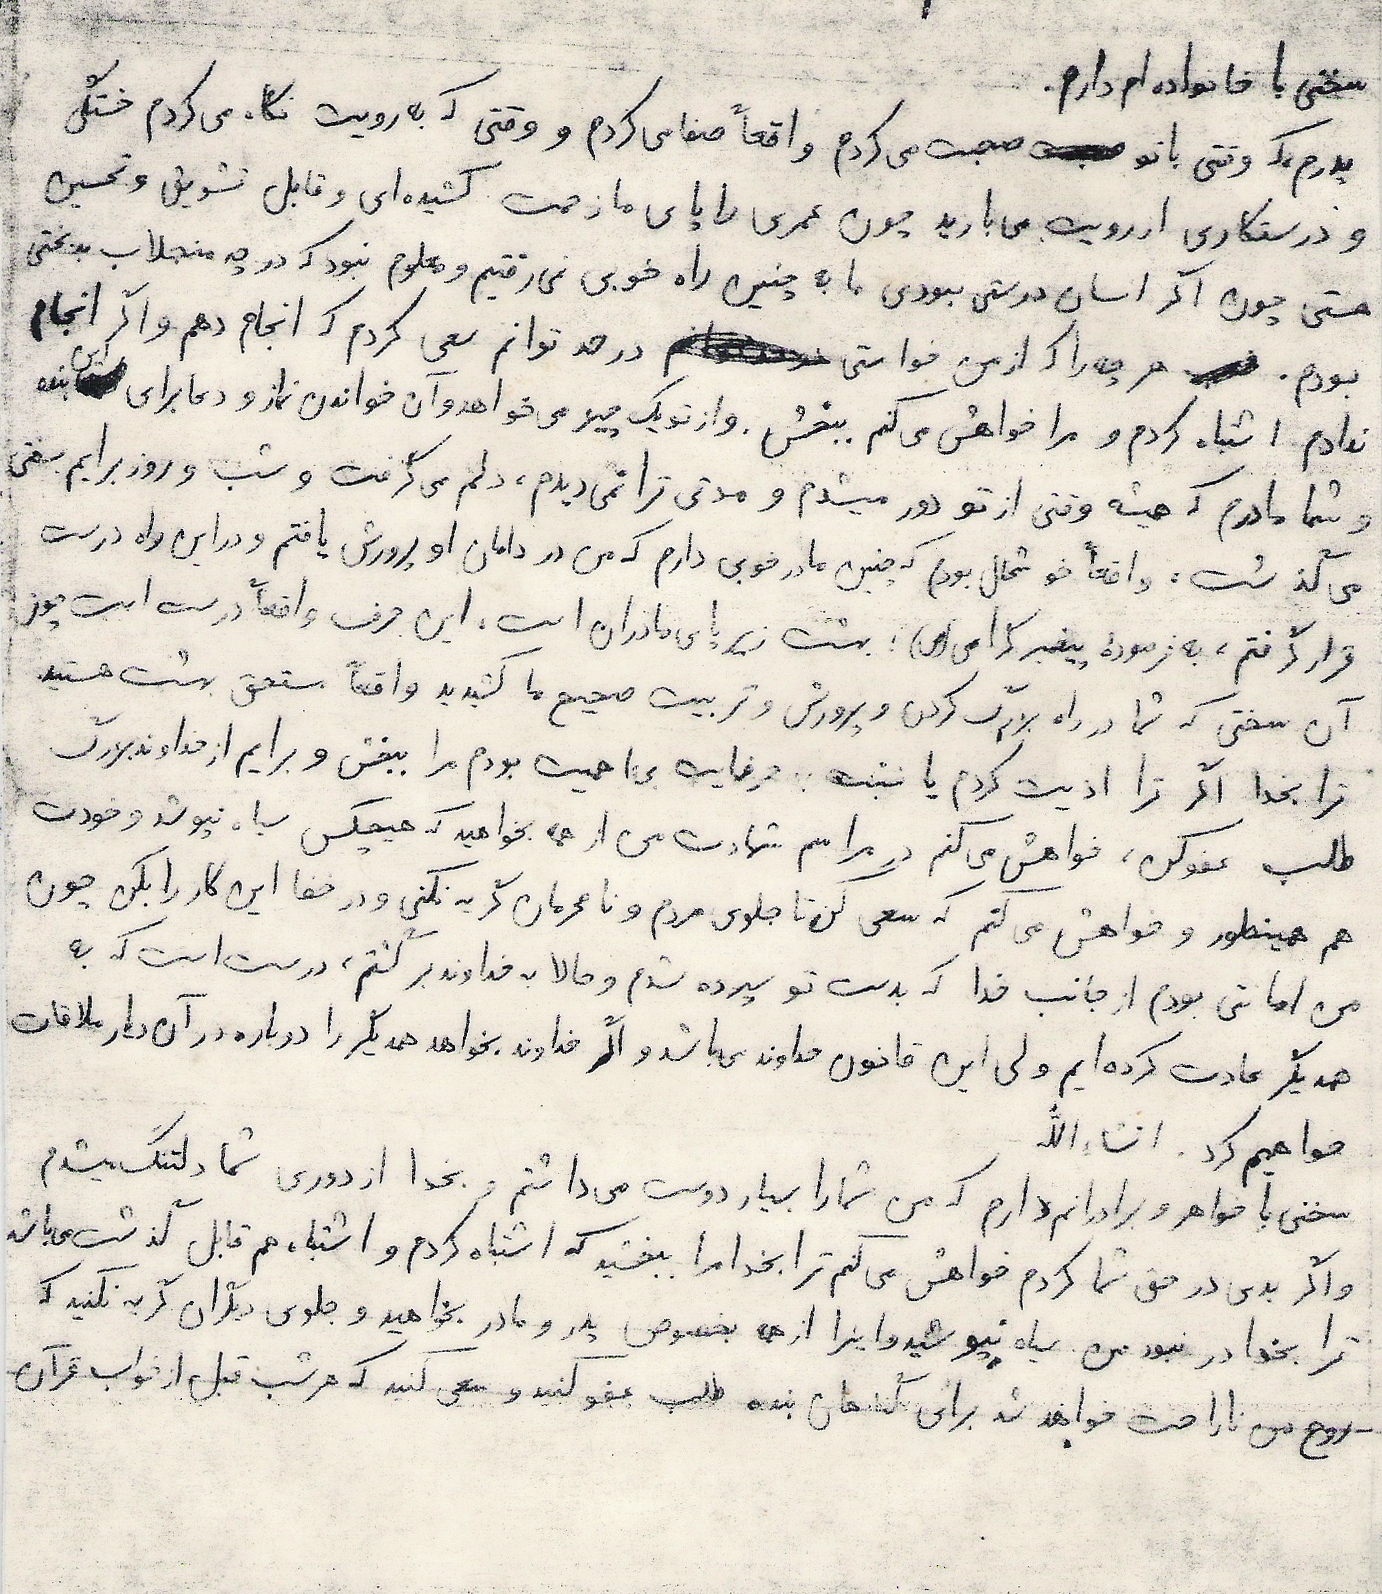 سخنی با خانواده ام دارم.
پدرم که وقتی با تو صحبت می‌کردم واقعاً صفا می‌کردم و وقتی که به رویت نگاه می‌کردم خستگی
و درستکاری از رویت می‌بارید چون عمری را پای ما زحمت کشیده‌ای و قابل تشویق و تحسین
هستی چون اگر انسان درستی نبودی ما به چنین راه خوبی نمی‌رفتیم و معلوم نبود که در چه منجلاب بدبختی
بودم. هر چه را که از من خواستی در حد توانم سعی کردم که انجام دهم و اگر انجام
ندادم اشتباه کردم و مرا خواهش می‌کنم ببخش. و از تو یک چیز می‌خواهد و آن خواندن نماز و دعا برای این بنده
و شما مادرم که همیشه وقتی از تو دور میشدم و مدتی ترا نمی‌دیدم، دلم می‌گرفت و شب و روز برایم سختی
می‌گذشت، واقعاً خوشحال بودم که چنین مادر خوبی دارم که من در دامان او پرورش یافتم و در این راه درست
قرار گرفتم، به فرموده پیغمبر گرامی (ص): بهشت زیر پای مادران است، این حرف واقعاً درست است چون
آن سختی که شما در راه بزرگ کردن و پرورش و تربیت صحیح ما کشیدید واقعاً مستحق بهشت هستید
ترا بخدا اگر ترا اذیت کردم یا نسبت به حرفایت بی‌اهمیت بودم مرا ببخش و برایم از خداوند بزرگ
طلب عفو کن، خواهش می‌کنم در مراسم شهادت من از همه بخواهید که هیچکس سیاه نپوشد و خودت
هم همینطور و خواهش می‌کنم که سعی کن تا جلوی مردم و نامحرمان گریه نکنی و در خفا این کار را بکن چون
من امانتی بودم از جانب خدا که بدست تو سپرده شدم و حالا به خداوند برگشتم، درست است که به
همدیگر عادت کرده‌ایم ولی این قانون خداوند می‌باشد و اگر خداوند بخواهد همدیگر را دوباره در آن دیار ملاقات
خواهیم کرد. انشاءالله
سخنی با خواهر و برادرانم دارم که من شما را بسیار دوست می‌داشتم و بخدا از دوری شما دلتنگ میشدم
و اگر بدی در حق شما کردم خواهش می‌کنم ترا بخدا مرا ببخشید که اشتباه کردم و اشتباه هم قابل گذشت می‌باشد
ترا بخدا در نبود من سیاه نپوشید و اینرا از همه بخصوص پدر و مادر بخواهید و جلوی دیگران گریه نکنید که
روح من ناراحت خواهد شد برای گناهان بنده طلب عفو کنید و سعی کنید که هر شب قبل از خواب قرآن